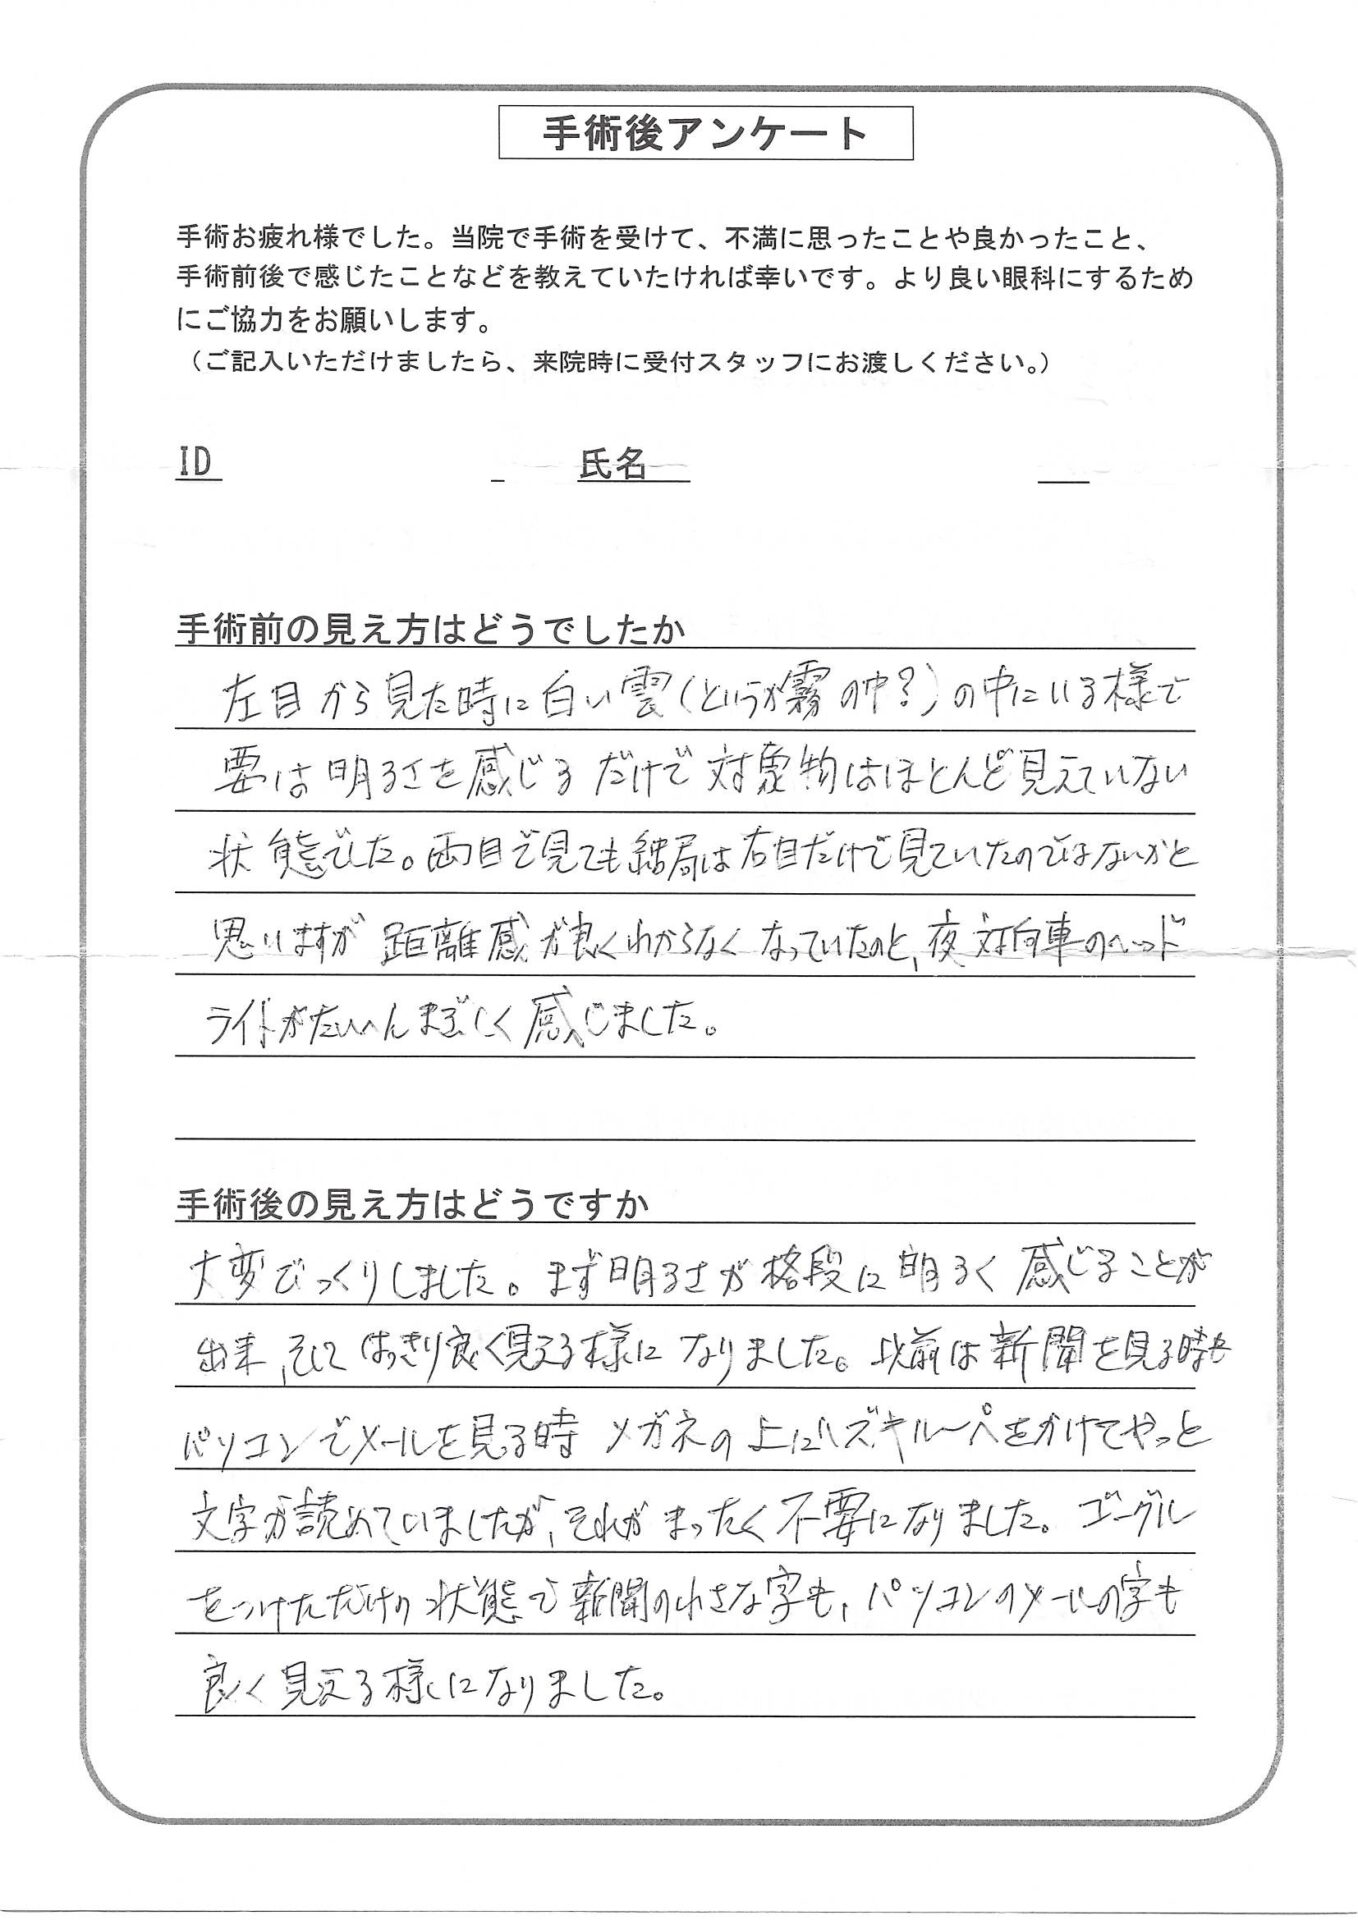 手術後アンケート
手術お疲れ様でした。当院で手術を受けて、不満に思ったことや良かったこと、
手術前後で感じたことなどを教えていたければ幸いです。より良い眼科にするため
にご協力をお願いします。
（ご記入いただけましたら、来院時に受付スタッフにお渡しください。）
ID 氏名
手術前の見え方はどうでしたか
左目から見た時に白い雲（というか霧の中？）の中にいる様で
要は明るさを感じるだけで対象物はほとんど見えていない
状態でした。両目で見ても結局は右目だけで見ていたのではないかと
思いますが距離感が良くわからなくなっていたのと、夜対向車のヘッド
ライトがたいへんまぶしく感じました。
手術後の見え方はどうですか
大変びっくりしました。まず明るさが格段に明るく感じることが
出来、そしてはっきり良く見える様になりました。以前は新聞を見る時も
パソコンでメールを見る時メガネの上にハズキルーペをかけてやっと
文字が読めていましたが、それがまったく不要になりました。ゴーグル
をつけただけの状態で新聞の小さな字も、パソコンのメールの字も
良く見える様になりました。